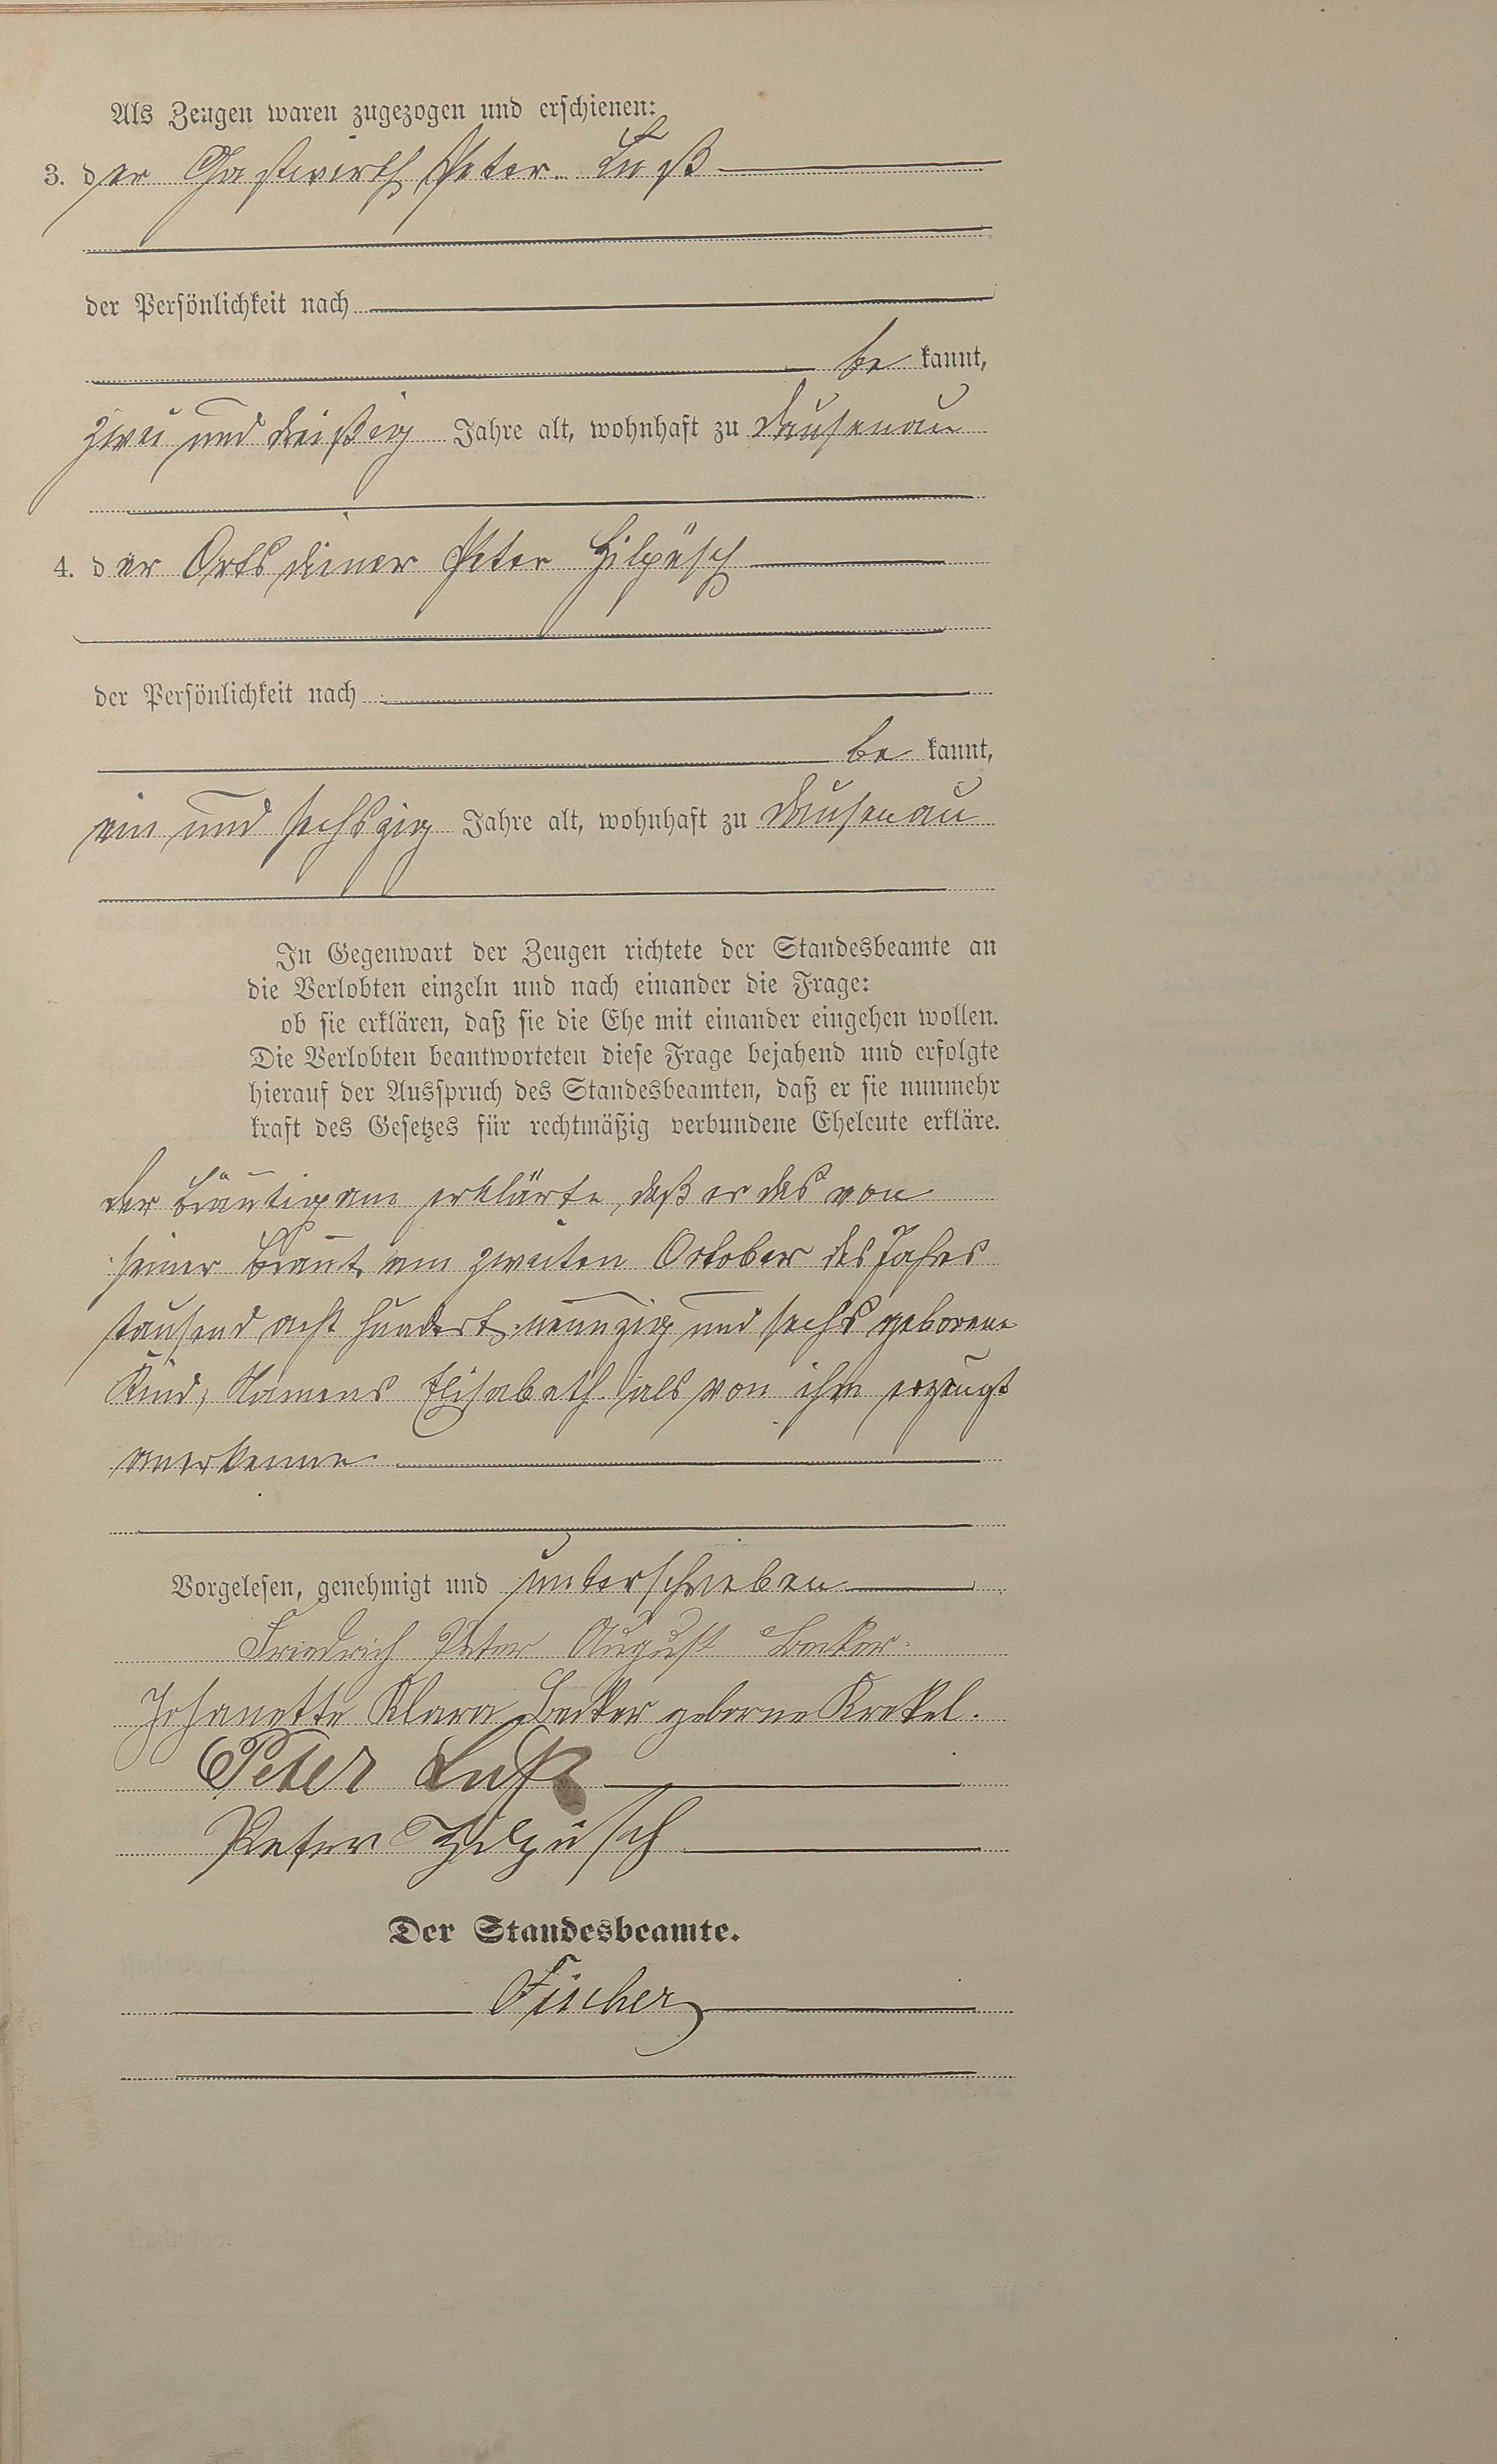 Als Zeugen waren zugezogen und erschienen:
3. der Gastwirth Peter Luß
der Persönlichkeit nach
be kannt,
zwei und dreißig Jahre alt, wohnhaft zu Dausenau
4. der Ortsdiener Peter Hilpüsch
der Persönlichkeit nach
be kannt,
ein und sechszig Jahre alt, wohnhaft zu Dausenau
In Gegenwart der Zeugen richtete der Standesbeamte an
die Verlobten einzeln und nach einander die Frage:
ob sie erklären, daß sie die Ehe mit einander eingehen wollen.
Die Verlobten beantworteten diese Frage bejahend und erfolgte
hierauf der Ausspruch des Standesbeamten, daß er sie nunmehr
kraft des Gesetzes für rechtmäßig verbundene Eheleute erkläre.
Der Bräutigam erklärte, daß er das von
seiner Braut am zweiten October des Jahres
tausend acht hundert neunzig und sechs geborene
Kind, Namens Elisabeth als von ihm erzeugt
anerkenne.
Vorgelesen, genehmigt und unterschrieben
Friedrich Peter August Becker.
Johanette Klara Becker geborne Krekel.
Peter Luß
Peter Hilpüsch
Der Standesbeamte.
Fischer